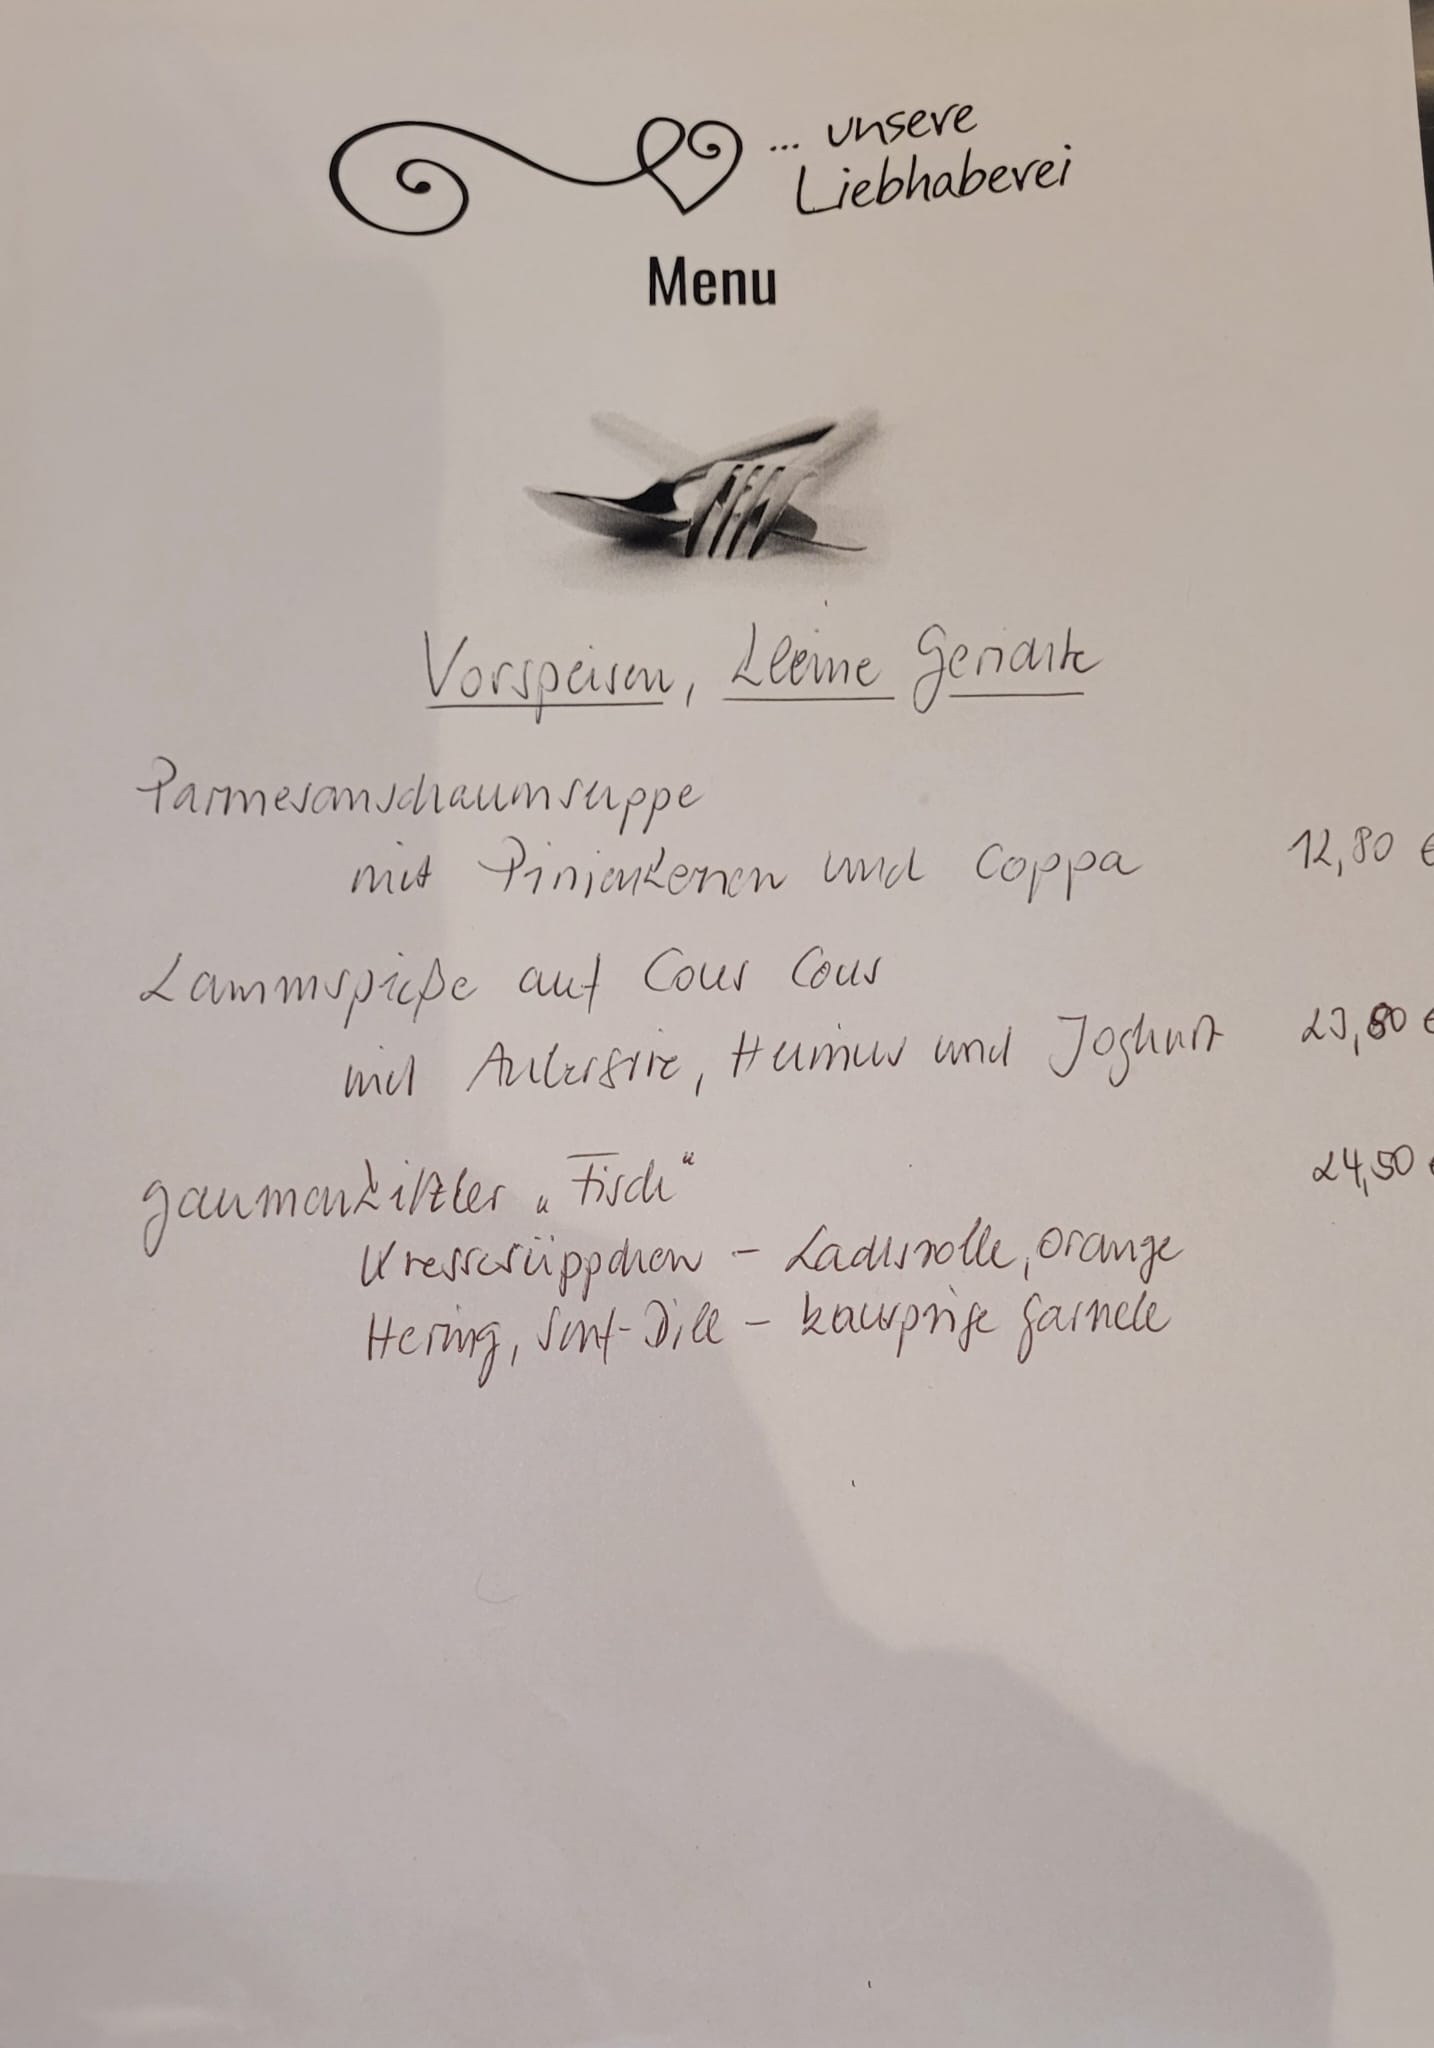 ... unsere
Liebhaberei
Menu
Vorspeisen, kleine Gerichte
Parmesanschaumsuppe
mit Pinienkernen und Coppa 12,80 €
Lammspieße auf Cous Cous
mit Aubergine, Humus und Joghurt 23,80 €
Gaumenkitzler „Fisch“ 24,50 €
Kressesüppchen - Lachsrolle, Orange
Hering, Senf-Dill - knusprige Garnele